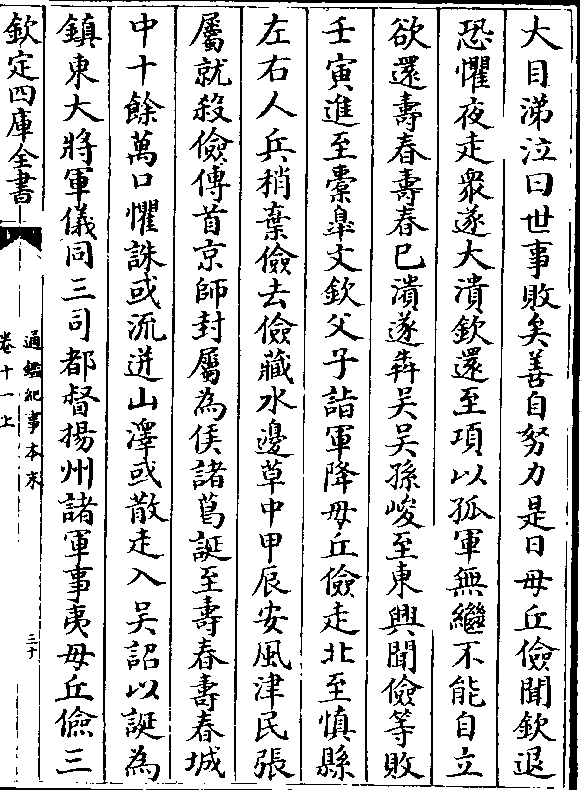 大目涕泣曰世事敗矣善自努力是日毋丘儉聞欽退
恐懼夜走衆遂大潰欽還至項以孤軍無繼不能自立
欲還壽春壽春已潰遂犇吴吴孫峻至東興聞儉等敗
壬寅進至橐臯文欽父子詣軍降毋丘儉走北至慎縣
左右人兵稍棄儉去儉藏水邊草中甲辰安風津民張
屬就殺儉傳首京師封屬為侯諸葛誕至壽春壽春城
中十餘萬口懼誅或流迸山澤或散走入吴詔以誕為
鎮東大將軍儀同三司都督揚州諸軍事夷毋丘儉三
欽定四庫全書
通鑑紀事本末
卷十一上
三十